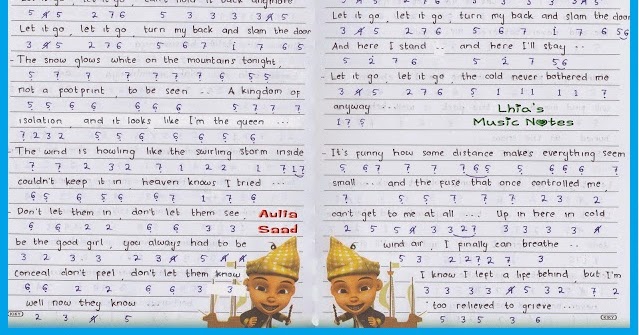 Let it go, let it go, can't hold it back anymore
5 4̸ 5 2 7 6 5 3 3 3 3 4̸ 5
Let it go, let it go, turn my back and slam the door
3 4̸ 5 2 7 6 5 6 7 i 7 6 5
- The snow glows white on the mountains tonight,
5 7 7 7 7 7 7 6 5 5
not a footprint to be seen.. A kingdom of
5 5 6 6 6 6 6 5 7 7 7
isolation, and it looks like I'm the queen ...
7 2 3 2 5 5 6 5 6 5 6
- The wind is howling like the swirling storm inside
7 7 2 3 2 7 1 2 2 1 7 17
couldn't keep it in, heaven knows I tried ...
5 6 5 6 6 7 1 7 6
- Don't let them in, don't let them see,
6 6 2 2 6 6 3 3
be the good girl, you always had to be
3 2 3 3 2 3 4̸ 5 4̸
conceal don't feel, don't let them know
6 6 2 2 6 6 3 3
well now they know ...
2 3 4̸ 5
Aulia
Saad
Let it go, let it go, turn my back and slam the door
3 4̸ 5 2 7 6 5 6 7 i 7 6 56
And here I stand .. and here I'll stay ..
5 2 7 6 5 2 7 56
- Let it go, let it go, the cold never bothered me
3 4̸ 5 2 7 6 5 1 1 1 1 1 7
anyway ....
1 7 5
Lhia's
Music Notes
- It's funny how some distance makes everything seem
5 6 7 7 7 7 6 5 5 6 6 6 7
small ... and the fuse that once controlled me,
7 5 5 7 7 7 2 3 2
can't get to me at all ... Up in here in cold
2 5 5 4̸ 3 3 2 7 3 3 3 3 4̸
wind air, I finally can breathe ..
5 3 2 2 7 2 7 3
I know I left a life behind, but I'm
3 3 3 3 3 4̸ 5 3 2 7 2
too relieved to grieve ...
5 3 5 3 6